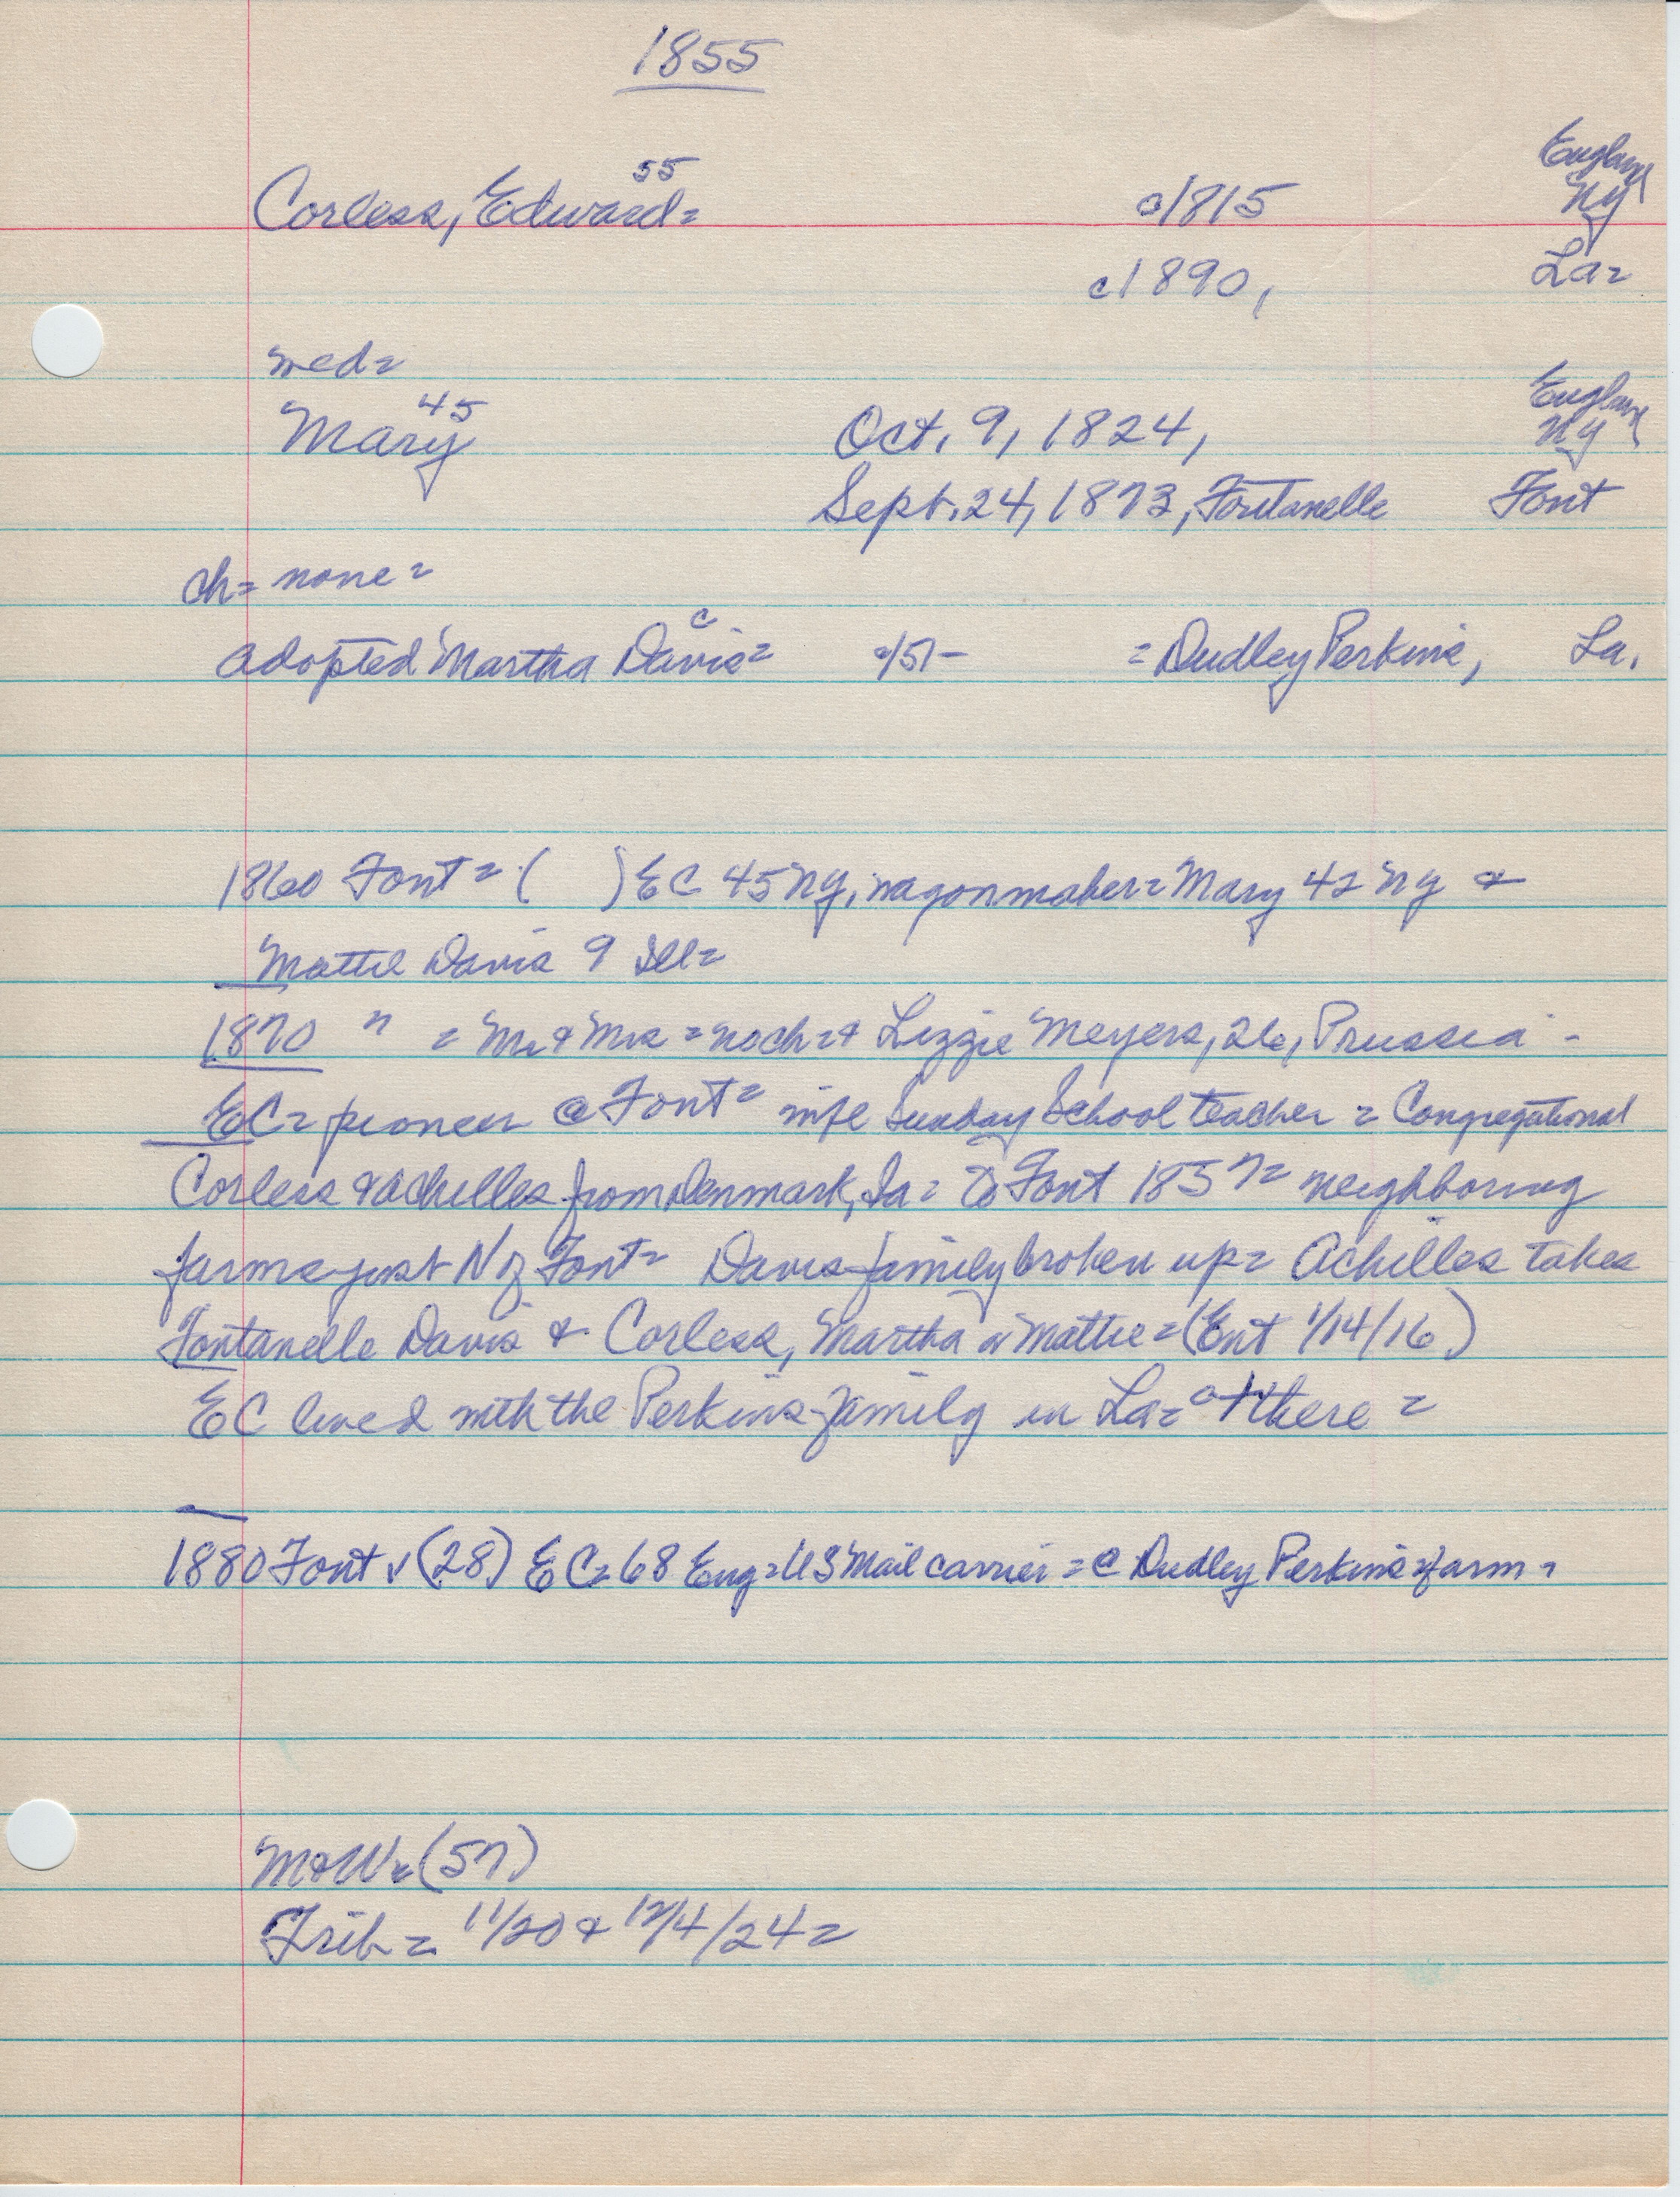 1855
55
England
Corless, Edward= c1815 NY
c1890, La=
wed=
45
England
Mary Oct. 9, 1824, NY
Sept. 24, 1873, Fontanelle Font
ch= none=
c
adopted Martha Davis= c/51- = Dudley Perkins, La.
1860 Font = ( ) EC 45 NY, wagonmaker= Mary 42 NY &
Mattie Davis 9 Ill=
1870 " = Mr & Mrs = no ch= & Lizzie Meyers, 26, Prussia -
EC= pioneer @ Font= wife Sunday School teacher = Congregational
Corless & Achilles from Denmark, Ia= To Font 1857= neighboring
farms just N of Font= Davis family broken up= Achilles takes
Fontanelle Davis & Corless, Martha or Mattie = (Ent 1/14/16)
EC lived with the Perkins family in La= there =
1880 Font v (28) EC= 68 Eng= US Mail carrier = @ Dudley Perkins farm =
M&W= (57)
Trib = 11/20 & 12/4/24=